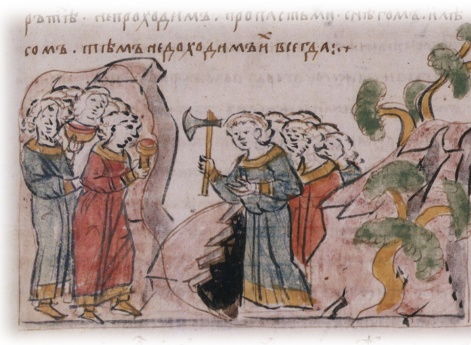 рътѣ непроходимъ . пропастьми . снѣгомъ . илѣ
сомъ . тѣмъ недоходимъ иⷯ всегда :·+